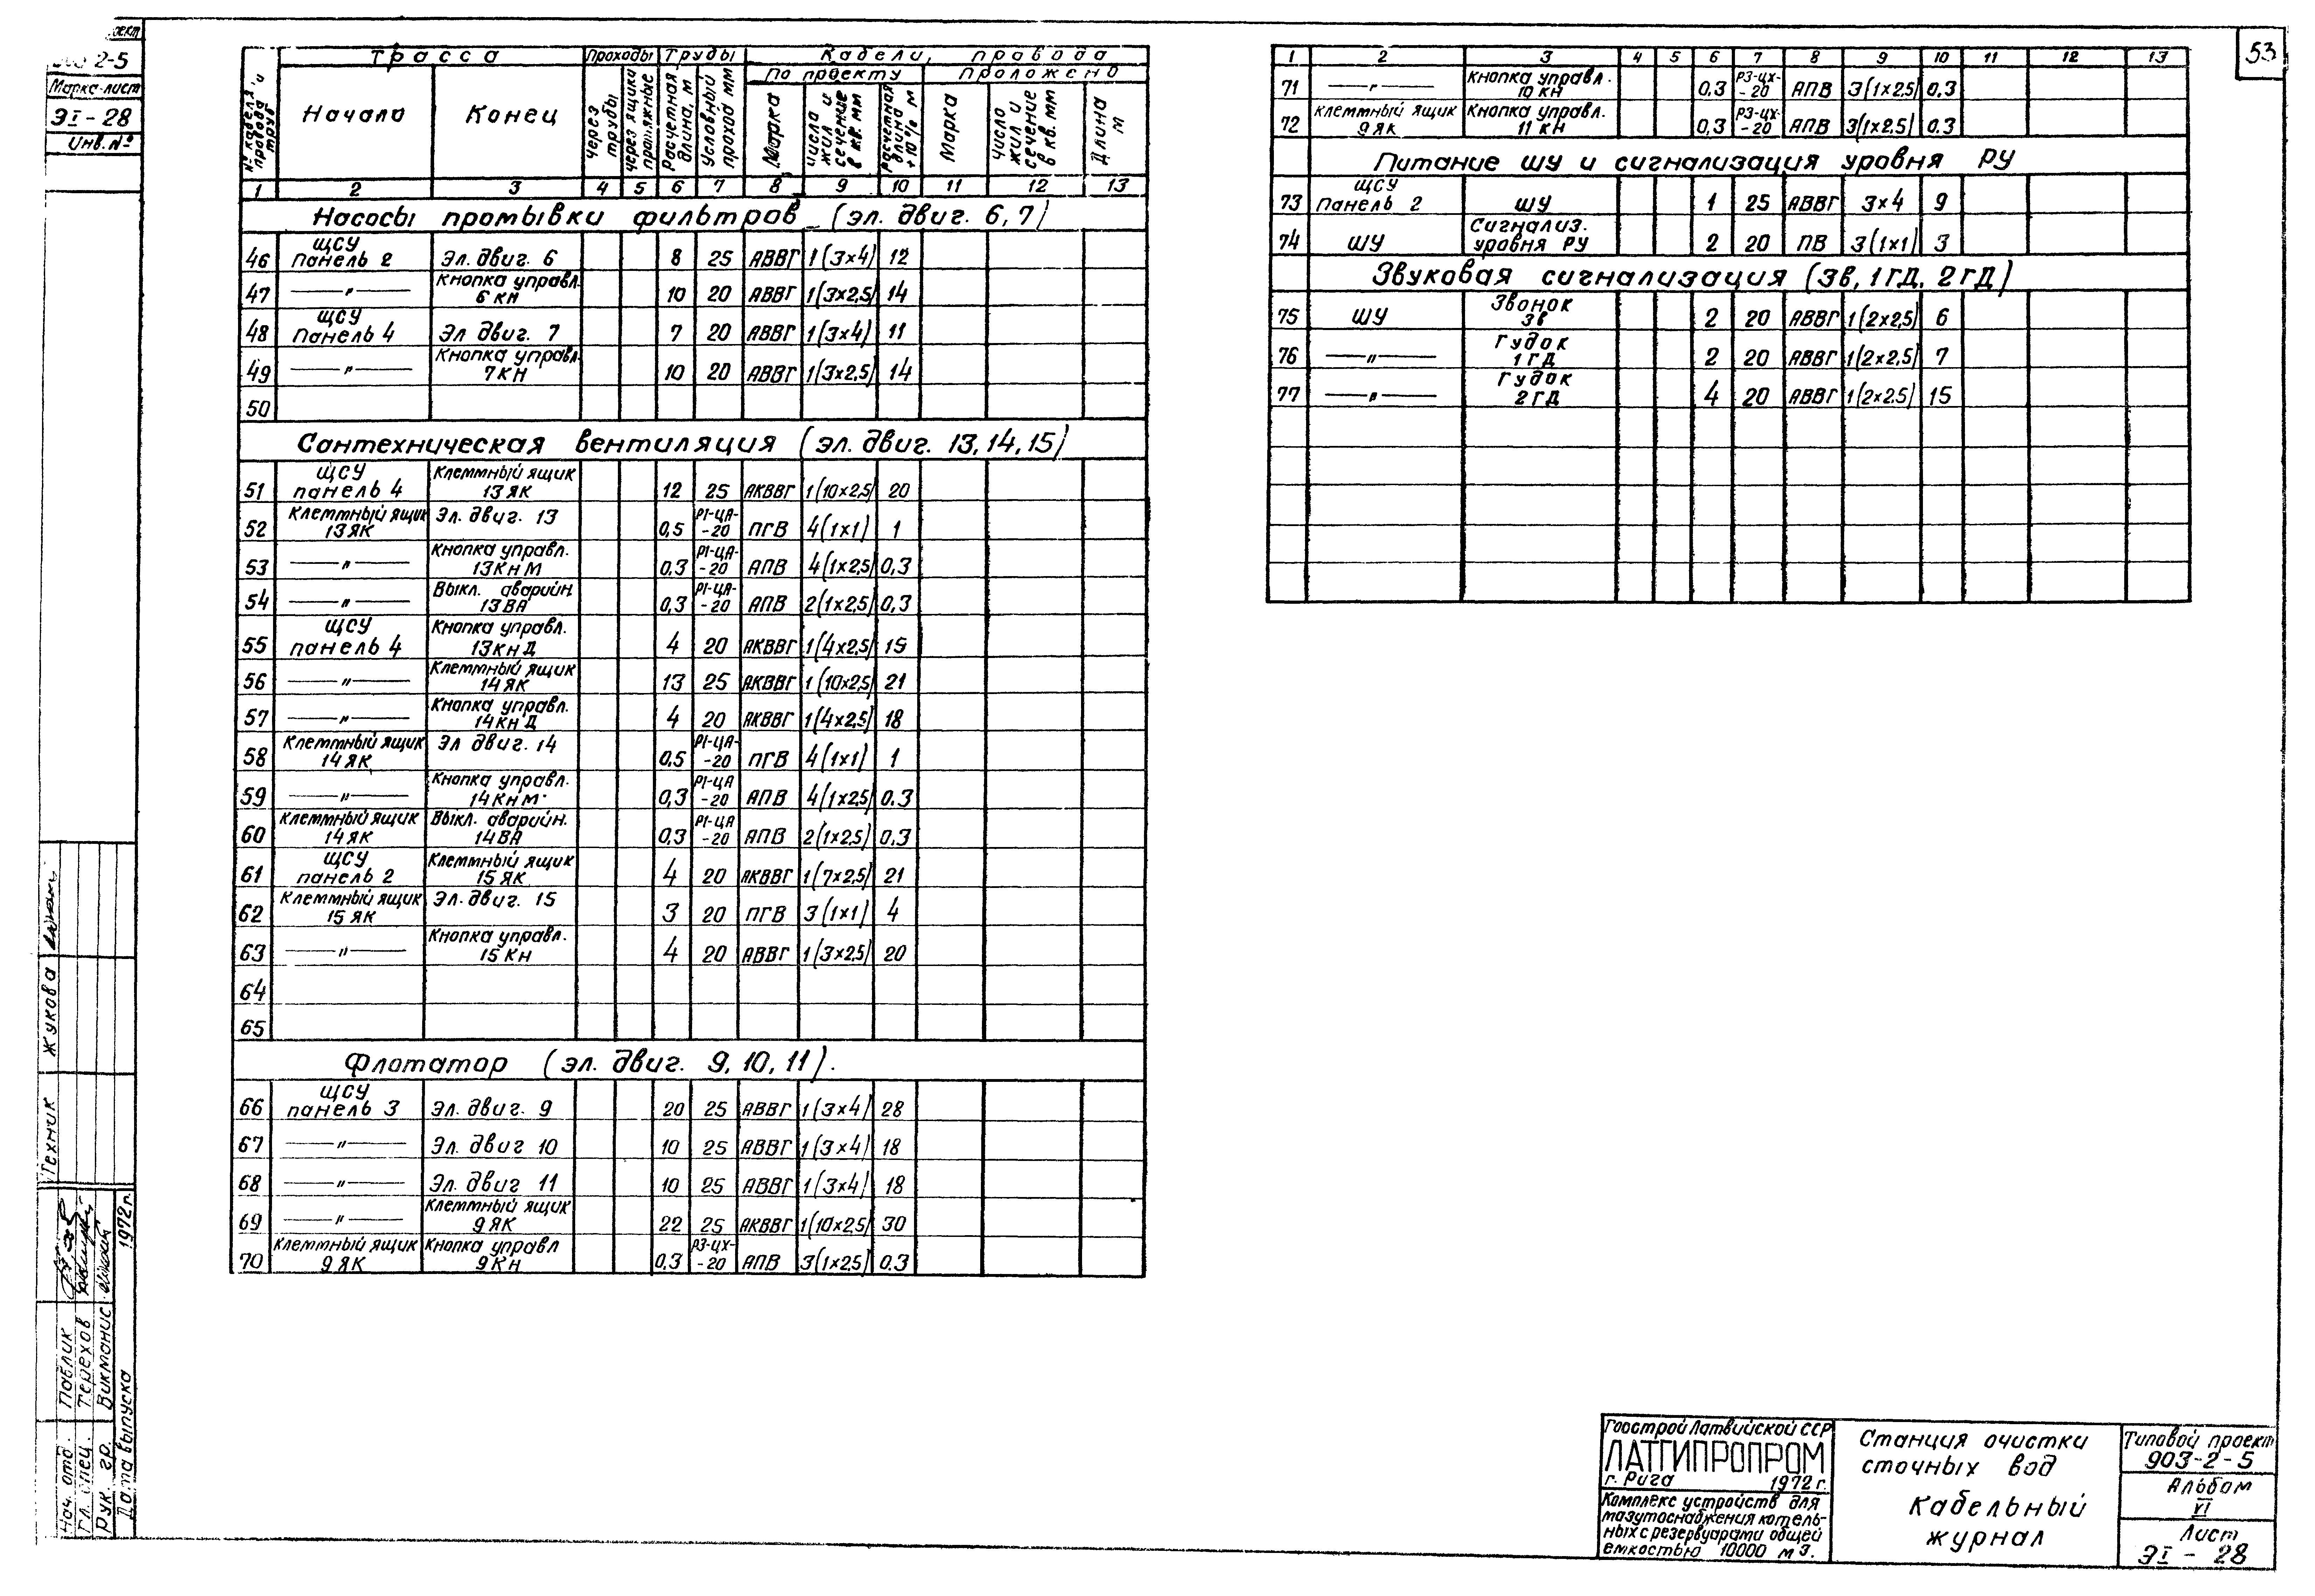 2-5
Марка-лист
ЭI-28
Инв.№
53
№ кабеля, провода и труб
Трасса
Проходы
Трубы
Кабели, провода
Начало
Конец
через трубы
через ящики протяжные
Расчетная длина, м
Условный проход мм
по проекту
проложено
Марка
Число жил и сечение в кв. мм
Расчетная длина +10% м
Марка
Число жил и сечение в кв. мм
Длина м
1 2 3 4 5 6 7 8 9 10 11 12 13
Насосы промывки фильтров (эл. двиг. 6,7)
46 ЩСУ панель 2 Эл. двиг. 6 8 25 АВВГ 1(3×4) 12
47 —〃— Кнопка управл. 6 КН 10 20 АВВГ 1(3×2,5) 14
48 ЩСУ Панель 4 Эл двиг. 7 7 20 АВВГ 1(3×4) 11
49 —〃— Кнопка управл. 7КН 10 20 АВВГ 1(3×2,5) 14
50
Сантехническая вентиляция (эл. двиг. 13,14,15)
51 ЩСУ панель 4 Клеммный ящик 13 ЯК 12 25 АКВВГ 1(10×2,5) 20
52 Клеммный ящик 13 ЯК Эл. двиг. 13 0,5 Р1-ЦА-20 ПГВ 4(1×1) 1
53 —〃— Кнопка управл. 13КнМ 0,3 Р1-ЦА-20 АПВ 4(1×2,5) 0,3
54 —〃— Выкл. аварийн. 13 ВА 0,3 Р1-ЦА-20 АПВ 2(1×2,5) 0,3
55 ЩСУ панель 4 Кнопка управл. 13КнД 4 20 АКВВГ 1(4×2,5) 19
56 —〃— Клеммный ящик 14 ЯК 13 25 АКВВГ 1(10×2,5) 21
57 —〃— Кнопка управл. 14КнД 4 20 АКВВГ 1(4×2,5) 18
58 Клеммный ящик 14 ЯК Эл двиг. 14 0,5 Р1-ЦА-20 ПГВ 4(1×1) 1
59 —〃— Кнопка управл. 14КнМ 0,3 Р1-ЦА-20 АПВ 4(1×2,5) 0.3
60 Клеммный ящик 14 ЯК Выкл. аварийн. 14ВА 0,3 Р1-ЦА-20 АПВ 2(1×2,5) 0.3
61 ЩСУ панель 2 Клеммный ящик 15 ЯК 4 20 АКВВГ 1(7×2,5) 21
62 Клеммный ящик 15 ЯК Эл. двиг. 15 3 20 ПГВ 3(1×1) 4
63 —〃— Кнопка управл. 15 Кн 4 20 АВВГ 1(3×2,5) 20
64
65
Флотатор (эл. двиг. 9, 10, 11).
66 ЩСУ панель 3 Эл. двиг. 9 20 25 АВВГ 1(3×4) 28
67 —〃— Эл. двиг 10 10 25 АВВГ 1(3×4) 18
68 —〃— Эл. двиг 11 10 25 АВВГ 1(3×4) 18
69 —〃— Клеммный ящик 9 ЯК 22 25 АКВВГ 1(10×2,5) 30
70 Клеммный ящик 9 ЯК Кнопка управл 9 Кн 0,3 РЗ-ЦХ-20 АПВ 3(1×2,5) 0.3
1 2 3 4 5 6 7 8 9 10 11 12 13
71 —〃— Кнопка управл. 10 КН 0,3 РЗ-ЦХ-20 АПВ 3(1×2,5) 0.3
72 Клеммный ящик 9 ЯК Кнопка управл. 11 КН 0,3 РЗ-ЦХ-20 АПВ 3(1×2,5) 0.3
Питание ШУ и сигнализация уровня РУ
73 ЩСУ Панель 2 ШУ 1 25 АВВГ 3×4 9
74 ШУ Сигнализ. уровня РУ 2 20 ПВ 3(1×1) 3
Звуковая сигнализация (Зв, 1ГД, 2ГД)
75 ШУ Звонок Зв 2 20 АВВГ 1(2×2,5) 6
76 —〃— Гудок 1ГД 2 20 АВВГ 1(2×2,5) 7
77 —〃— Гудок 2ГД 4 20 АВВГ 1(2×2,5) 15
Техник Жукова
Нач. отд. Паблик
Гл. спец. Терехов
Рук. гр. Викманис
Дата выпуска 1972г.
Госстрой Латвийской ССР
ЛАТГИПРОПРОМ
г. Рига 1972г.
Комплекс устройств для
мазутоснабжения котель-
ных с резервуарами общей
емкостью 10000 м3.
Станция очистки
сточных вод
Кабельный
журнал
Типовой проект
903-2-5
Альбом
VI
Лист
ЭI-28